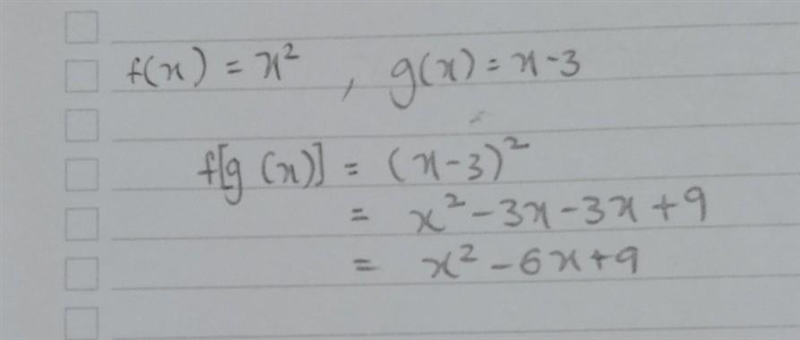 f(x) = x² , g(x) = x - 3
f[g (x)] = (x - 3)²
= x² - 3x - 3x + 9
= x² - 6x + 9